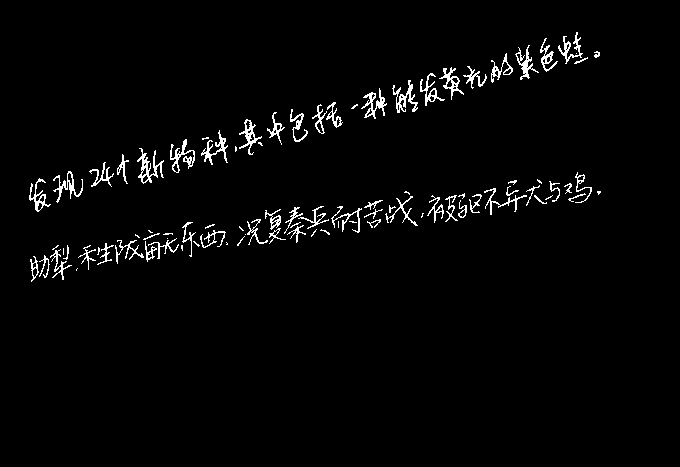 发现24个新物种,其中包括一种能发荧光的紫色蛙。
助犁,禾生陇亩无东西,况复秦兵耐苦战,被驱不异犬与鸡.